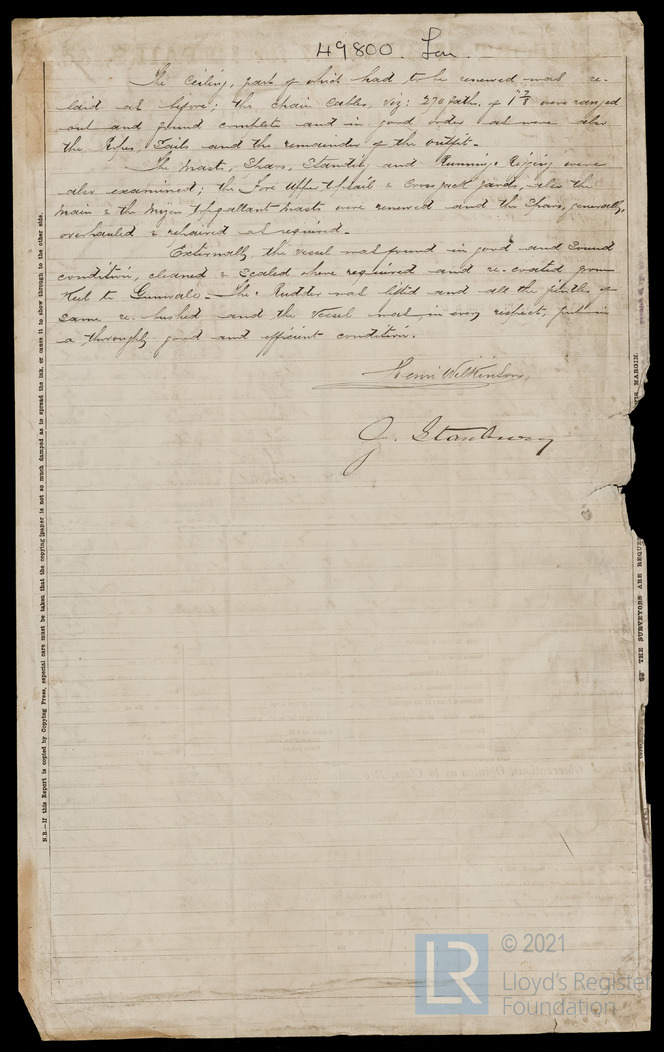 49800. Lon.
The Ceiling, part of which had to be renewed was re-
laid as before; the chain Cables, viz: 270 fath. of 1 7/8 were ranged
out and found complete and in good order as were also
the Ropes, Sails and the remainder of the outfit.
The Masts, Spars, Standing and Running Rigging were
also examined; the Fore Upper Topsail & Crossjack yards, also the
Main & the Mizen Topgallant Masts were renewed and the Spars, generally,
overhauled & repaired as required.
Externally, the vessel was found in good and sound
condition, cleaned & scaled where required and re-coated from
Keel to Gunwale. The Rudder was lifted and all the pintles of
same re-bushed and the vessel was, in every respect, put in
a thoroughly good and efficient condition.
Henri Wilkinson,
J. Stanbury
N.B.—If this Report is copied by Copying Press, especial care must be taken that the copying paper is not so much damped as to spread the ink, or cause it to show through to the other side.
THE SURVEYORS ARE REQUE
MARGIN.
LR
© 2021
Lloyd's Register
Foundation